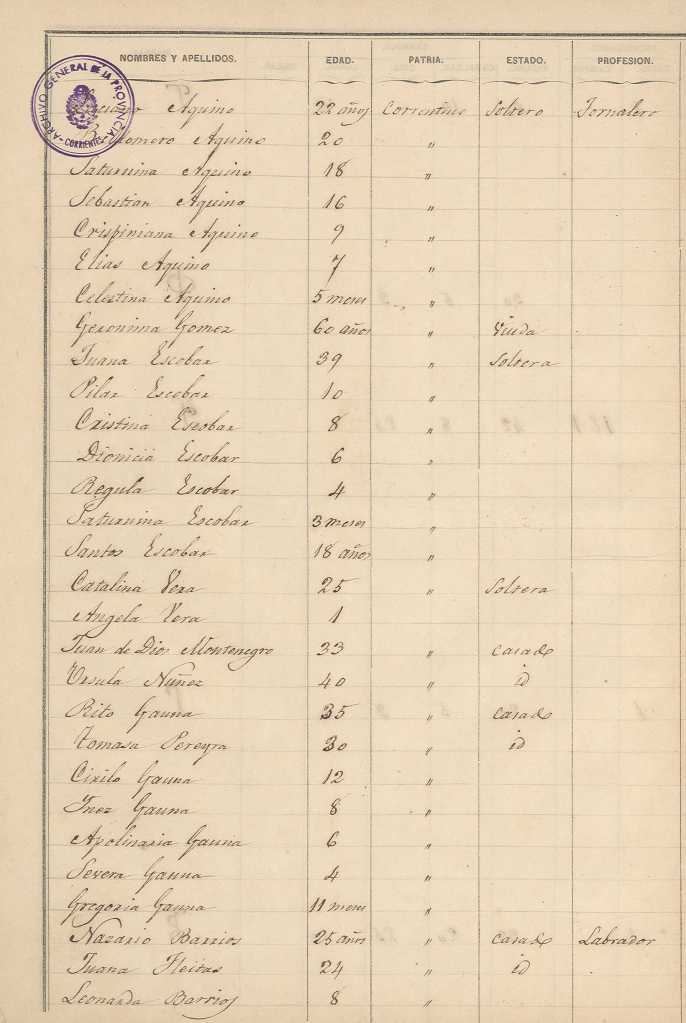 NOMBRES Y APELLIDOS. EDAD. PATRIA. ESTADO. PROFESION.
ARCHIVO GENERAL DE LA PROVINCIA - CORRIENTES -
Aquino 22 años Correntino Soltero Jornalero
Aquino 20 "
Saturnina Aquino 18 "
Sebastian Aquino 16 "
Crispiniana Aquino 9 "
Elias Aquino 7 "
Celestina Aquino 5 meses "
Geronima Gomez 60 años " Viuda
Juana Escobar 39 " Soltera
Pilar Escobar 10 "
Cristina Escobar 8 "
Dionicia Escobar 6 "
Regula Escobar 4 "
Saturnina Escobar 3 meses "
Santos Escobar 18 años "
Catalina Vera 25 " Soltera
Angela Vera 1 "
Juan de Dios Montenegro 33 " Casado
Ursula Nuñez 40 " id
Rito Gauna 35 " Casado
Tomasa Pereyra 30 " id
Cirilo Gauna 12 "
Ynez Gauna 8 "
Apolinaria Gauna 6 "
Severa Gauna 4 "
Gregoria Gauna 11 meses "
Nazario Barrios 25 años " Casado Labrador
Juana Fleitas 24 " id
Leonarda Barrios 8 "